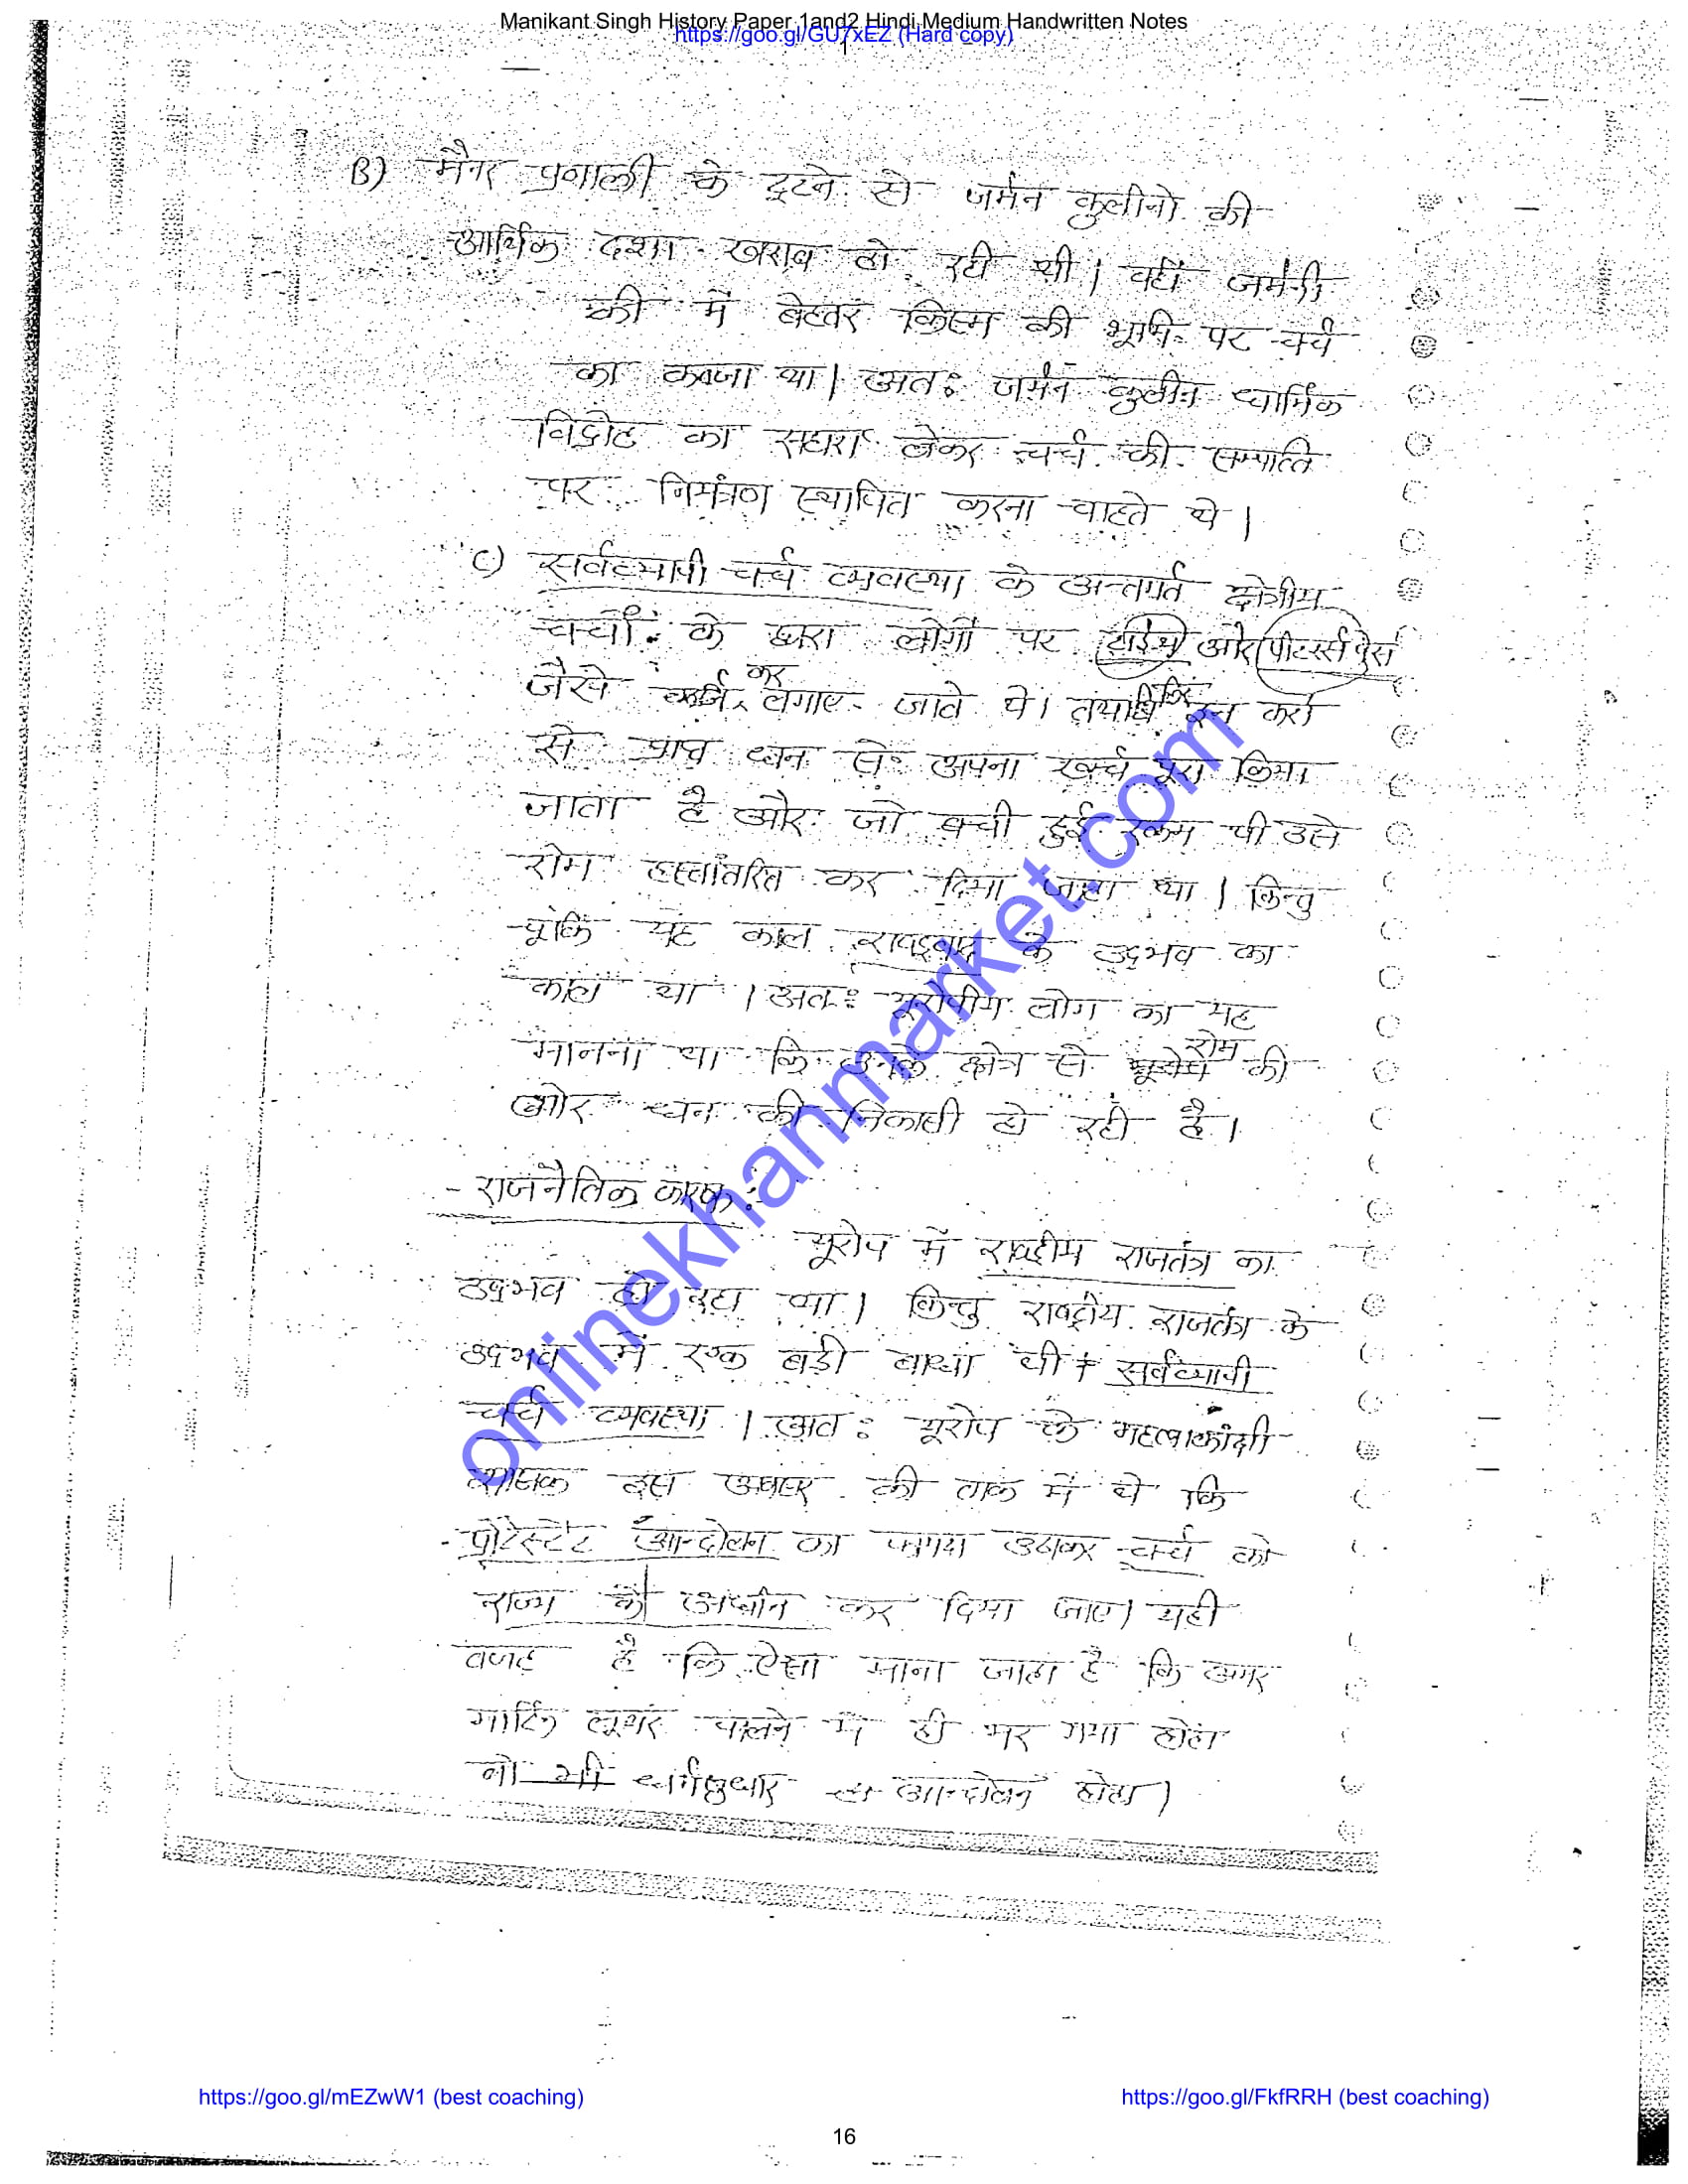 Manikant Singh History Paper 1and2 Hindi Medium Handwritten Notes
https://goo.gl/GU7xEZ (Hard copy)
B) मैनर प्रणाली के टूटने से जर्मन कुलीनो की
आर्थिक दशा खराब हो रही थी। वहीं जर्मनी
की में बेहतर किस्म की भूमि पर चर्च
का कब्जा था। अतः जर्मन कुलीन धार्मिक
विद्रोह का सहारा लेकर चर्च की सम्पत्ति
पर नियंत्रण स्थापित करना चाहते थे।
C) सर्वव्यापी चर्च व्यवस्था के अन्तर्गत क्षेत्रीय
चर्चों के द्वारा लोगों पर टाईथ और पीटर्स पेंस
जैसे कर लगाए जाते थे। इन करों
से प्राप्त धन से अपना खर्च पूरा किया
जाता है और जो बची हुई रकम थी उसे
रोम हस्तांतरित कर दिया जाता था। किन्तु
चूंकि यह काल राष्ट्रवाद के उद्भव का
काल था। अतः यूरोपीय लोग का यह
मानना था कि उनके क्षेत्र से रोम की
ओर धन की निकासी हो रही है।
- राजनैतिक कारक :-
यूरोप में राष्ट्रीय राजतंत्र का
उद्भव हो रहा था। किन्तु राष्ट्रीय राजतंत्र के
उद्भव में एक बड़ी बाधा थी सर्वव्यापी
चर्च व्यवस्था। अतः यूरोप के महत्वाकांक्षी
शासक इस अवसर की ताक में थे कि
प्रोटेस्टेंट आन्दोलन का फायदा उठाकर चर्च को
राज्य के अधीन कर दिया जाए। यही
वजह है कि ऐसा माना जाता है कि अगर
मार्टिन लूथर पालने में ही मर गया होता
तो भी धर्मसुधार आन्दोलन होता।
onlinekhanmarket.com
https://goo.gl/mEZwW1 (best coaching)
https://goo.gl/FkfRRH (best coaching)
16